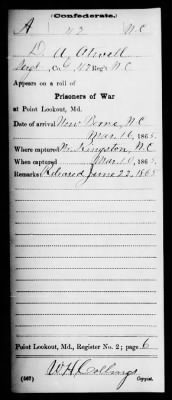 (Confederate.)
A 42 N.C.
D. A. Atwell
Sergt, Co. G, 42 Reg't N.C.
Appears on a roll of
Prisoners of War
at Point Lookout, Md.
Date of arrival New Berne, N.C.
Mar. 16, 1865.
Where captured Nr. Kingston, N.C.
When captured Mar. 10, 1865.
Remarks: Released June 22, 1865
Point Lookout, Md., Register No. 2; page 6
W.H. Collings
(567) Copyist.